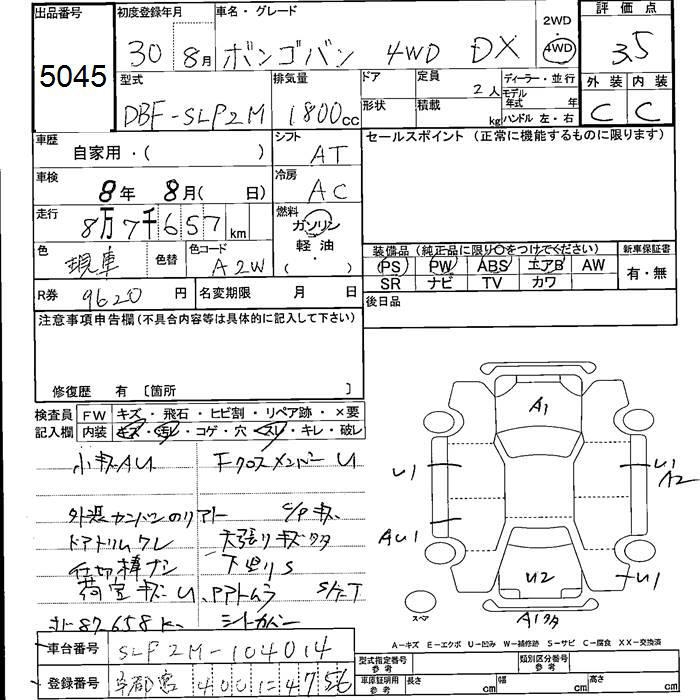 出品番号
5045
初度登録年月
30 8月
車名・グレード
ボンゴバン 4WD DX
2WD
4WD
評価点
3.5
外装 内装
C C
型式
DBF-SLP2M
排気量
1800cc
ドア
形状
定員
2人
積載
kg
ディーラー・並行
モデル年式 年
ハンドル 左・右
車歴
自家用・( )
シフト
AT
セールスポイント (正常に機能するものに限ります)
車検
8年 8月( 日)
冷房
AC
走行
8万7千657km
燃料
ガソリン
軽油
( ・ )
色
現車
色替
色コード
A2W
装備品 (純正品に限り○をつけてください)
PS PW ABS エアB AW
SR ナビ TV カワ
新車保証書
有・無
R券
9620円
名変期限 月 日
後日品
注意事項申告欄(不具合内容等は具体的に記入して下さい)
修復歴 有 〔箇所 〕
検査員記入欄
FW キズ・飛石・ヒビ割・リペア跡・×要
内装 キズ・汚レ・コゲ・穴・スレ・キレ・破レ
小キズAU
Fクロスメンバー U
外装カンバンのリアリー
C/Pキズ
ドアトリムワレ
天張りキズワタ
仕切棒ナシ
下廻りS
荷室キズU
シートカバー
87,658K
A1
U1
U1
A2
AU1
U1
U2
スペア
A-キズ E-エクボ U-凹み W-補修跡 S-サビ C-腐食 XX-交換済
車台番号
SLP2M-104014
登録番号
宇都宮 400 4756
型式指定番号
参考
類別区分番号
参考
車庫証明用
参考
長さ cm
幅 cm
高さ cm